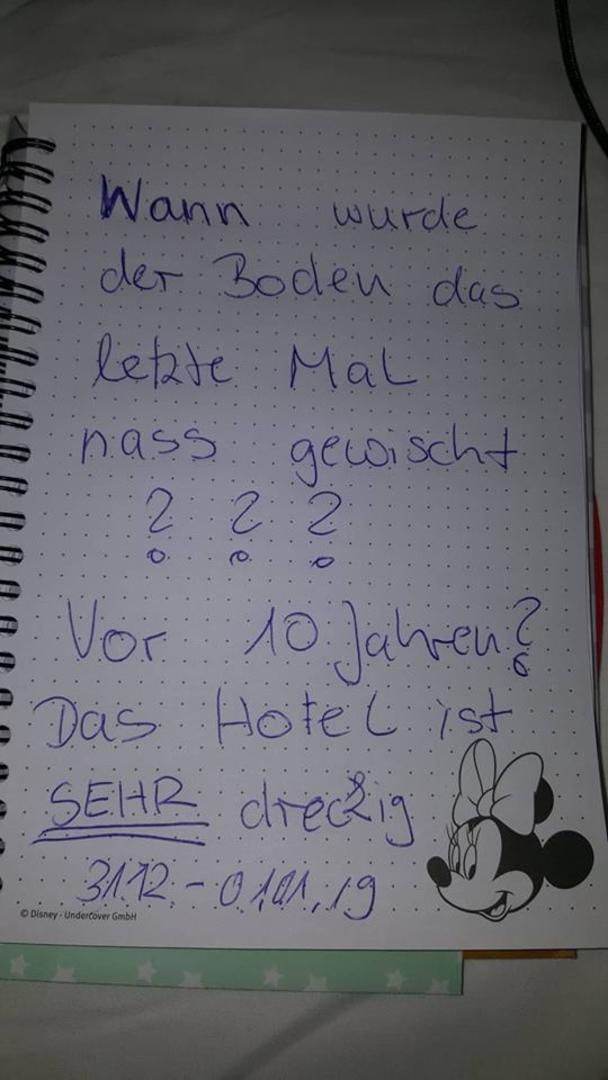 Wann wurde
der Boden das
letzte Mal
nass gewischt
? ? ?
Vor 10 Jahren?
Das Hotel ist
SEHR dreckig
31.12.-01.01.19
© Disney · Undercover GmbH